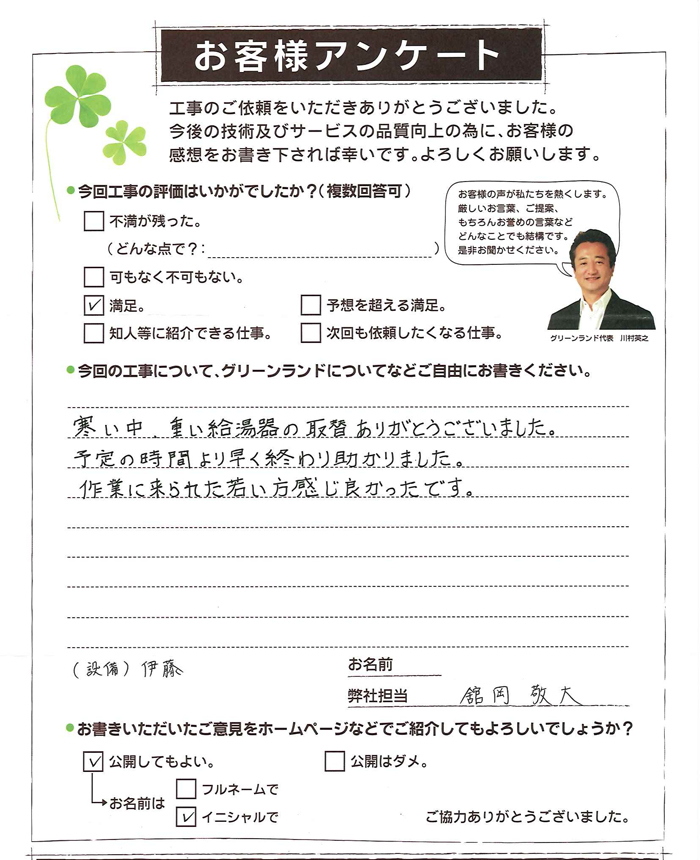 お客様アンケート
工事のご依頼をいただきありがとうございました。
今後の技術及びサービスの品質向上の為に、お客様の
感想をお書き下されば幸いです。よろしくお願いします。
●今回工事の評価はいかがでしたか?(複数回答可)
不満が残った。
(どんな点で?: )
可もなく不可もない。
満足。
予想を超える満足。
知人等に紹介できる仕事。
次回も依頼したくなる仕事。
お客様の声が私たちを熱くします。
厳しいお言葉、ご提案、
もちろんお誉めの言葉など
どんなことでも結構です。
是非お聞かせください。
グリーンランド代表 川村英之
●今回の工事について、グリーンランドについてなどご自由にお書きください。
寒い中、重い給湯器の取替ありがとうございました。
予定の時間より早く終わり助かりました。
作業に来られた若い方感じ良かったです。
(設備) 伊藤
お名前
弊社担当 舘岡 敬大
●お書きいただいたご意見をホームページなどでご紹介してもよろしいでしょうか?
公開してもよい。
公開はダメ。
お名前は
フルネームで
イニシャルで
ご協力ありがとうございました。